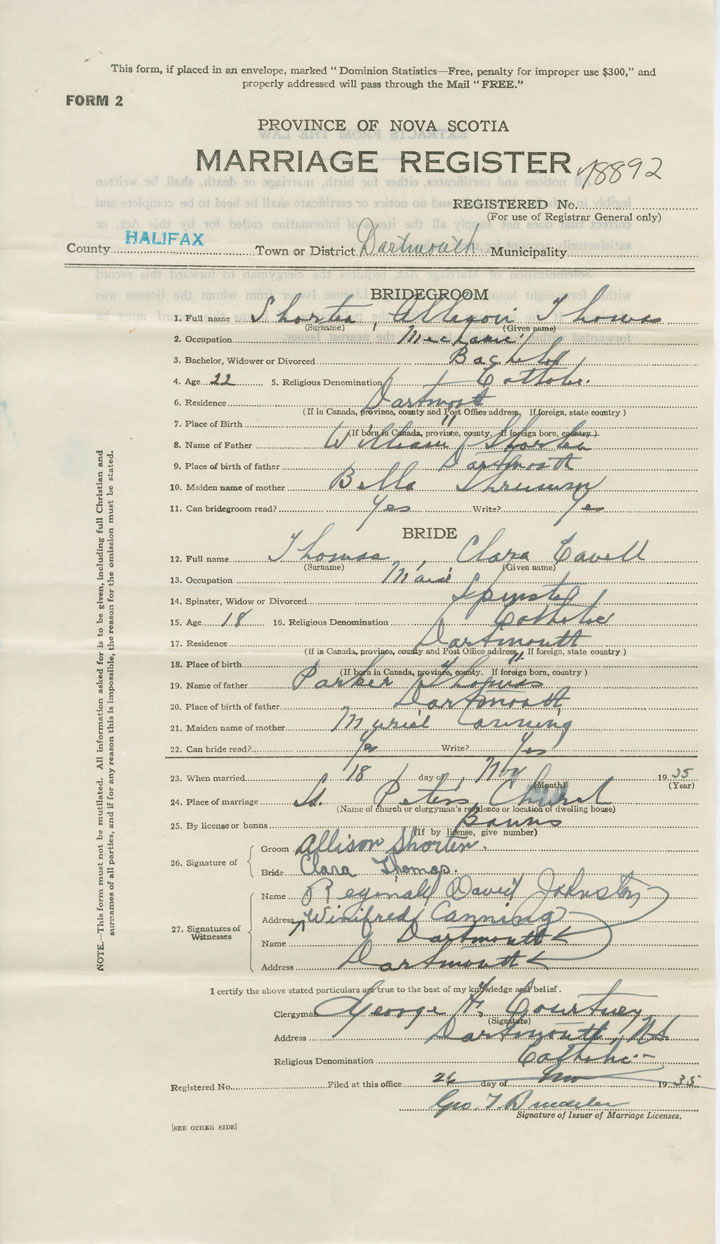 This form, if placed in an envelope, marked "Dominion Statistics—Free, penalty for improper use $300," and
properly addressed will pass through the Mail "FREE."
FORM 2
PROVINCE OF NOVA SCOTIA
MARRIAGE REGISTER
REGISTERED No. 48892
(For use of Registrar General only)
County HALIFAX Town or District Dartmouth Municipality
BRIDEGROOM
1. Full name Shorten, Thomas
(Surname) (Given name)
2. Occupation Mechanic
3. Bachelor, Widower or Divorced Bachelor
4. Age 22 5. Religious Denomination Catholic.
6. Residence Dartmouth
(If in Canada, province, county and Post Office address. If foreign, state country)
7. Place of Birth "
(If born in Canada, province, county. If foreign born, country)
8. Name of Father William Shorten
9. Place of birth of father Dartmouth
10. Maiden name of mother Bella
11. Can bridegroom read? Yes Write? Yes
BRIDE
12. Full name Thomas, Clara Cavell
(Surname) (Given name)
13. Occupation Maid
14. Spinster, Widow or Divorced Spinster
15. Age 18 16. Religious Denomination Catholic
17. Residence Dartmouth
(If in Canada, province, county and Post Office address. If foreign, state country)
18. Place of birth "
(If born in Canada, province, county. If foreign born, country)
19. Name of father Parker Thomas
20. Place of birth of father Dartmouth
21. Maiden name of mother Muriel Canning
22. Can bride read? Yes Write? Yes
23. When married 18 day of Nov 1935
(Month) (Year)
24. Place of marriage St. Peters Church
(Name of church or clergyman's residence or location of dwelling house)
25. By license or banns Banns
(If by license, give number)
26. Signature of
Groom Allison Shorten.
Bride Clara Thomas.
27. Signatures of Witnesses
Name Reginald David Johnston
Address Winifred Canning
Name Dartmouth
Address Dartmouth
I certify the above stated particulars are true to the best of my knowledge and belief.
Clergyman George F. Courtney
(Signature)
Address Dartmouth, N.S.
Religious Denomination Catholic
Registered No. Filed at this office 26 day of Nov 1935
Geo. T.
Signature of Issuer of Marriage Licenses.
[SEE OTHER SIDE]
NOTE.—This form must not be mutilated. All information asked for is to be given, including full Christian and
surnames of all parties, and if for any reason this is impossible, the reason for the omission must be stated.